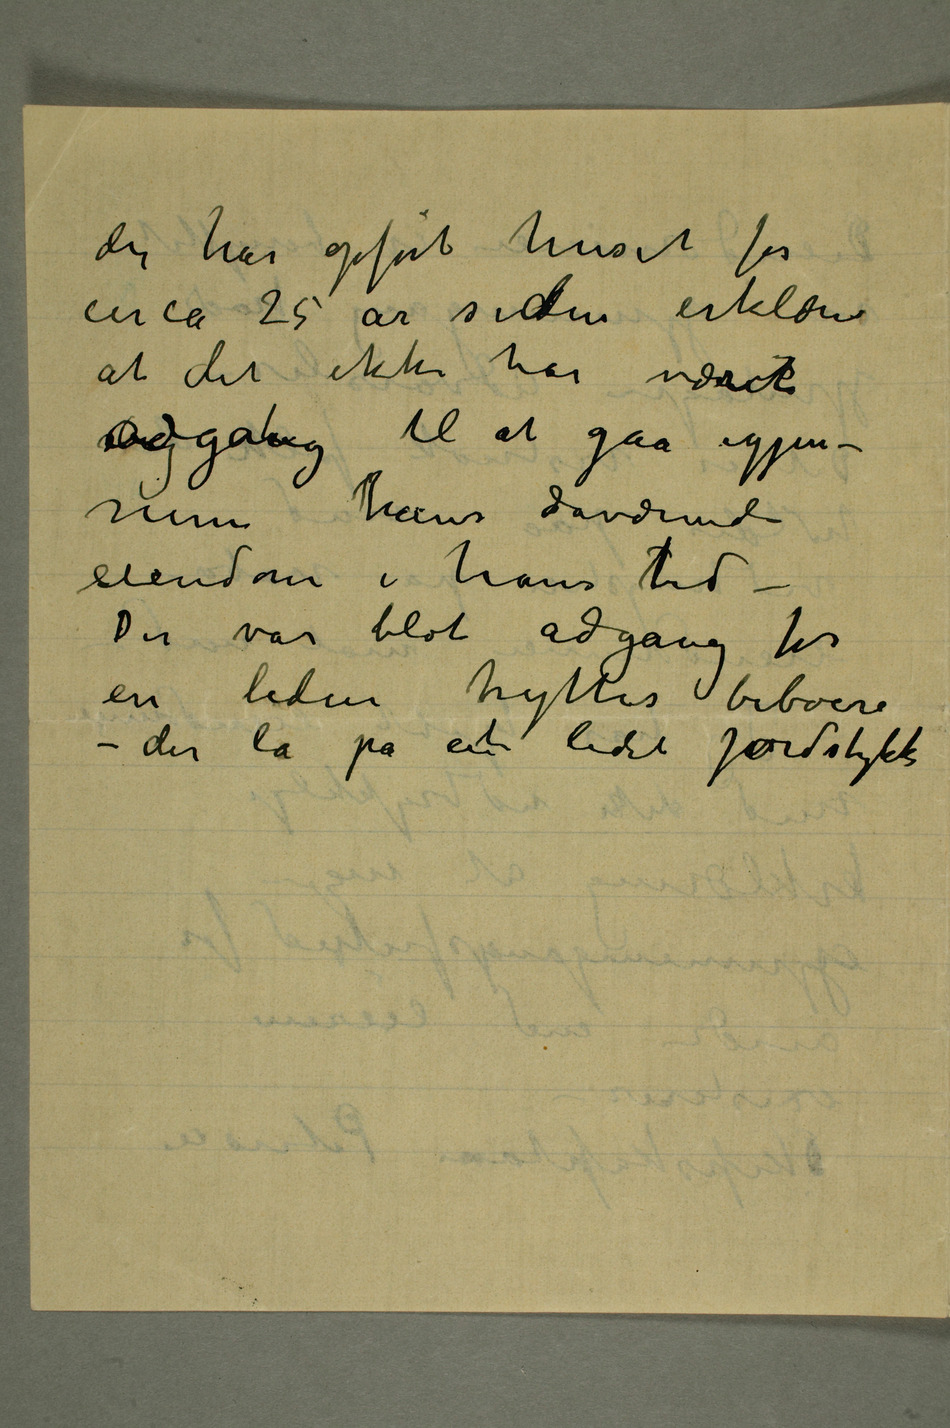 der har opført huset for
circa 25 år siden erklære
at det ikke har været
adgang til at gaa igjen-
nem hans daværende
eiendom i hans tid –
Der var blot adgang for
en liden hyttes beboere
– der lå på et lidet jordstykke